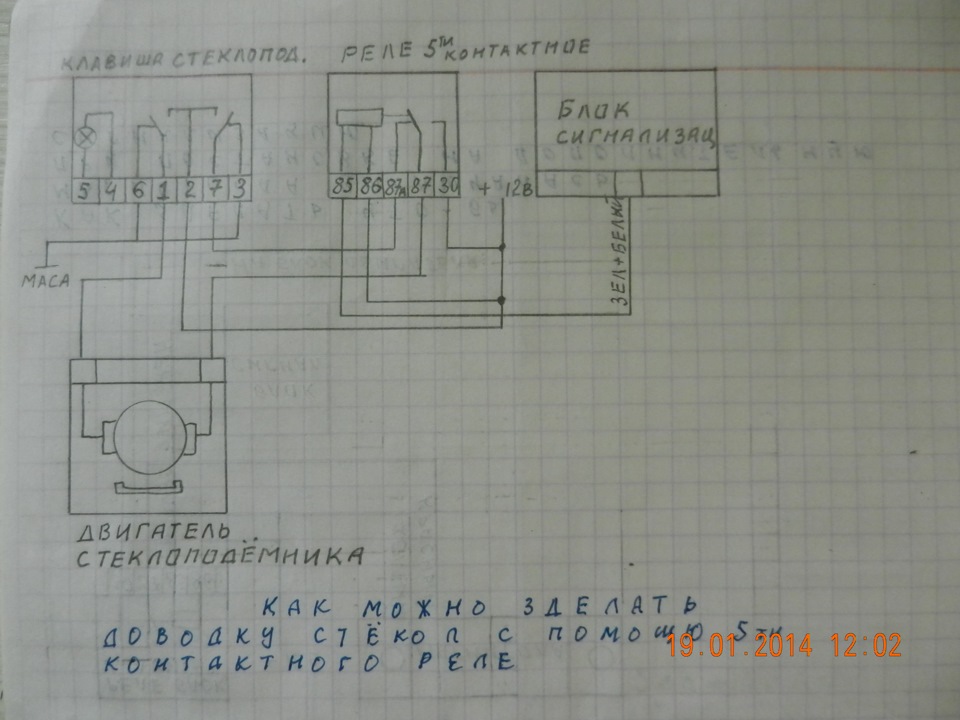 КЛАВИША СТЕКЛОПОД. РЕЛЕ 5ТИ КОНТАКТНОЕ
БЛОК
СИГНАЛИЗАЦ
5 4 6 1 2 7 3
85 86 87А 87 30 + 12В
ЗЕЛ+БЕЛЫЙ
МАСА
ДВИГАТЕЛЬ
СТЕКЛОПОДЁМНИКА
КАК МОЖНО ЗДЕЛАТЬ
ДОВОДКУ СТЁКОЛ С ПОМОЩЮ 5ТИ
КОНТАКТНОГО РЕЛЕ
19.01.2014 12:02